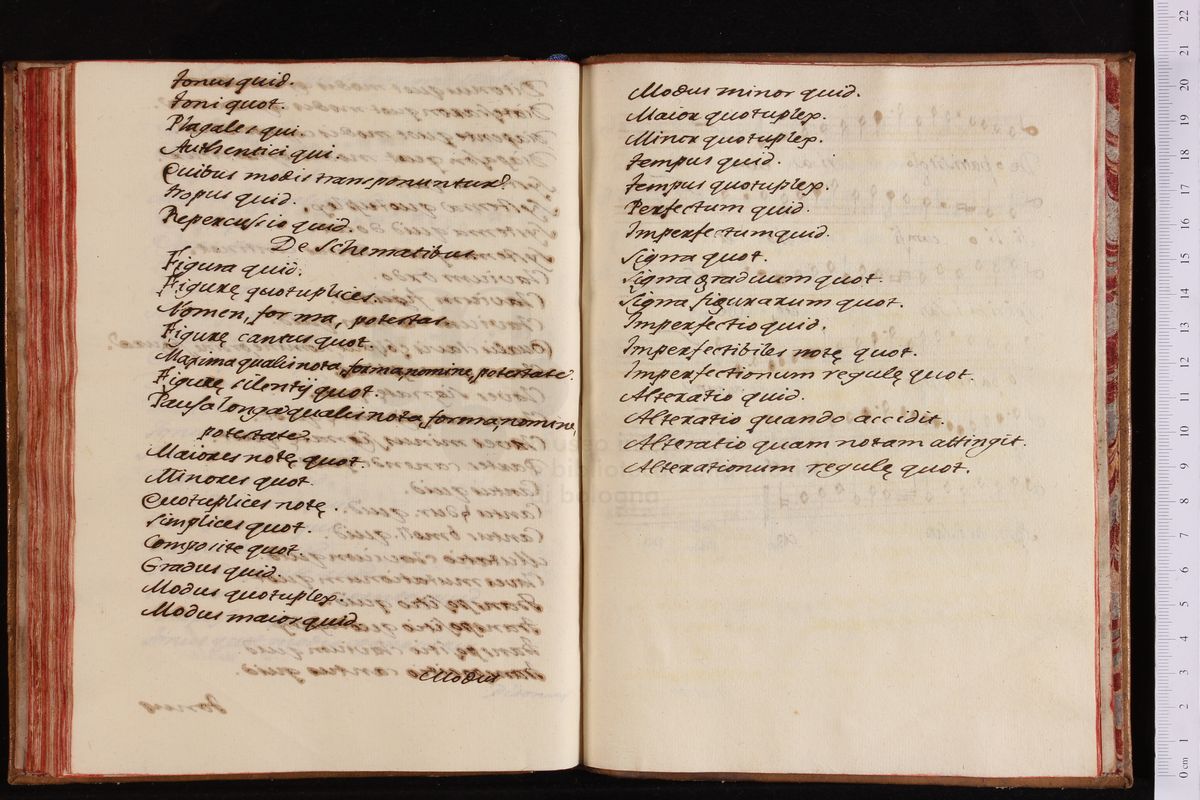 Tonus quid.
Toni quot.
Plagales qui.
Authentici qui.
Quibus modis transponuntur.
Tropus quid.
Repercussio quid.
De Schematibus.
Figura quid.
Figurę quotuplices.
Nomen, forma, potestas.
Figurę cantus quot.
Maxima qualis nota, forma, nomine, potestate.
Figurę silentij quot.
Pausa longa qualis nota, forma, nomine,
potestate.
Maiores notę quot.
Minores quot.
Quotuplices notę.
Simplices quot.
Composite quot.
Gradus quid.
Modus quotuplex.
Modus maior quid.
Modus
Modus minor quid.
Maior quotuplex.
Minor quotuplex.
Tempus quid.
Tempus quotuplex.
Perfectum quid.
Imperfectum quid.
Signa quot.
Signa graduum quot.
Signa figurarum quot.
Imperfectio quid.
Imperfectibiles notę quot.
Imperfectionum regulę quot.
Alteratio quid.
Alteratio quando accidit.
Alteratio quam notam attingit.
Alterationum regulę quot.
0 cm 1 2 3 4 5 6 7 8 9 10 11 12 13 14 15 16 17 18 19 20 21 22